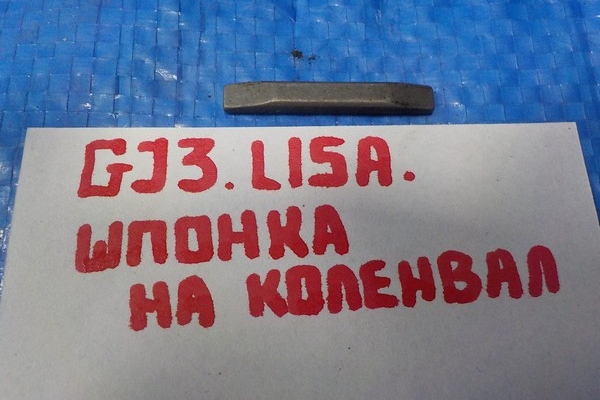 GJ3. LISA.
ШПОНКА
НА КОЛЕНВАЛ